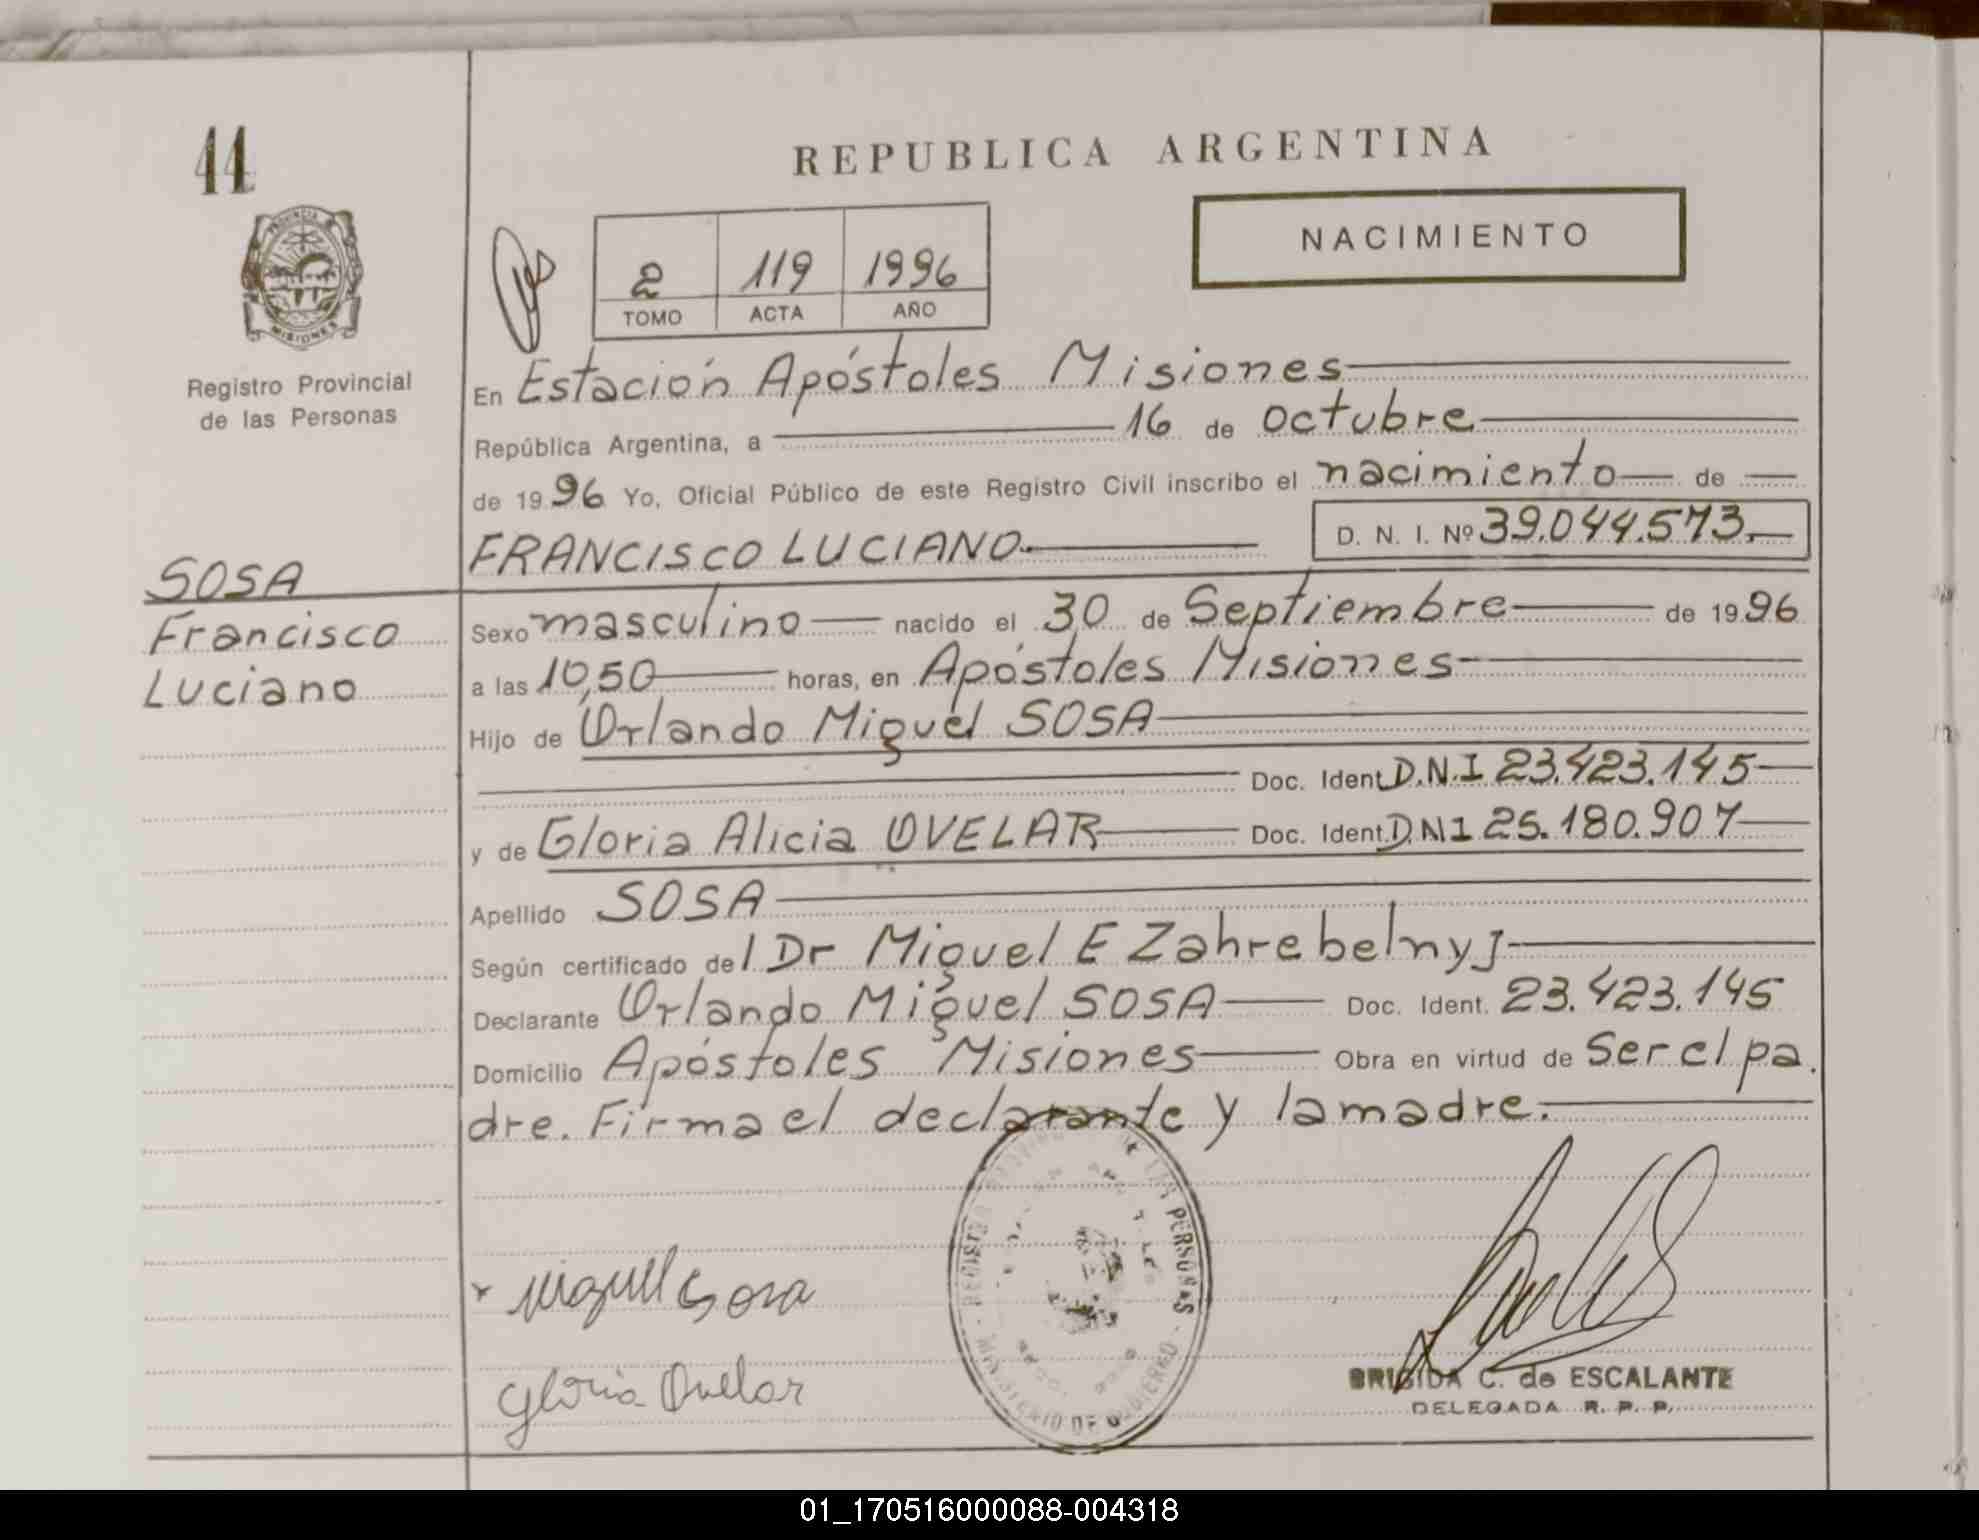 44
REPUBLICA ARGENTINA
NACIMIENTO
2 119 1996
TOMO ACTA AÑO
PROVINCIA DE
MISIONES
Registro Provincial
de las Personas
En Estación Apóstoles Misiones
República Argentina, a 16 de octubre
de 19 96 Yo, Oficial Público de este Registro Civil inscribo el nacimiento de
FRANCISCO LUCIANO. D. N. I. Nº 39.044.573.
SOSA
Francisco
Luciano
Sexo masculino nacido el 30 de Septiembre de 19 96
a las 10,50 horas, en Apóstoles Misiones
Hijo de Orlando Miguel SOSA
Doc. Ident. D.N.I 23.423.145
y de Gloria Alicia OVELAR Doc. Ident. D.N.I 25.180.907
Apellido SOSA
Según certificado del Dr Miguel E Zahrebelnyj
Declarante Orlando Miguel SOSA Doc. Ident. 23.423.145
Domicilio Apóstoles Misiones Obra en virtud de Ser el pa.
dre. Firma el declarante y la madre.
REGISTRO DE LAS PERSONAS
MINISTERIO DE GOBIERNO
x Miguel Sosa
Gloria Ovelar
BRIGIDA C. de ESCALANTE
DELEGADA R. P. P.
01_170516000088-004318